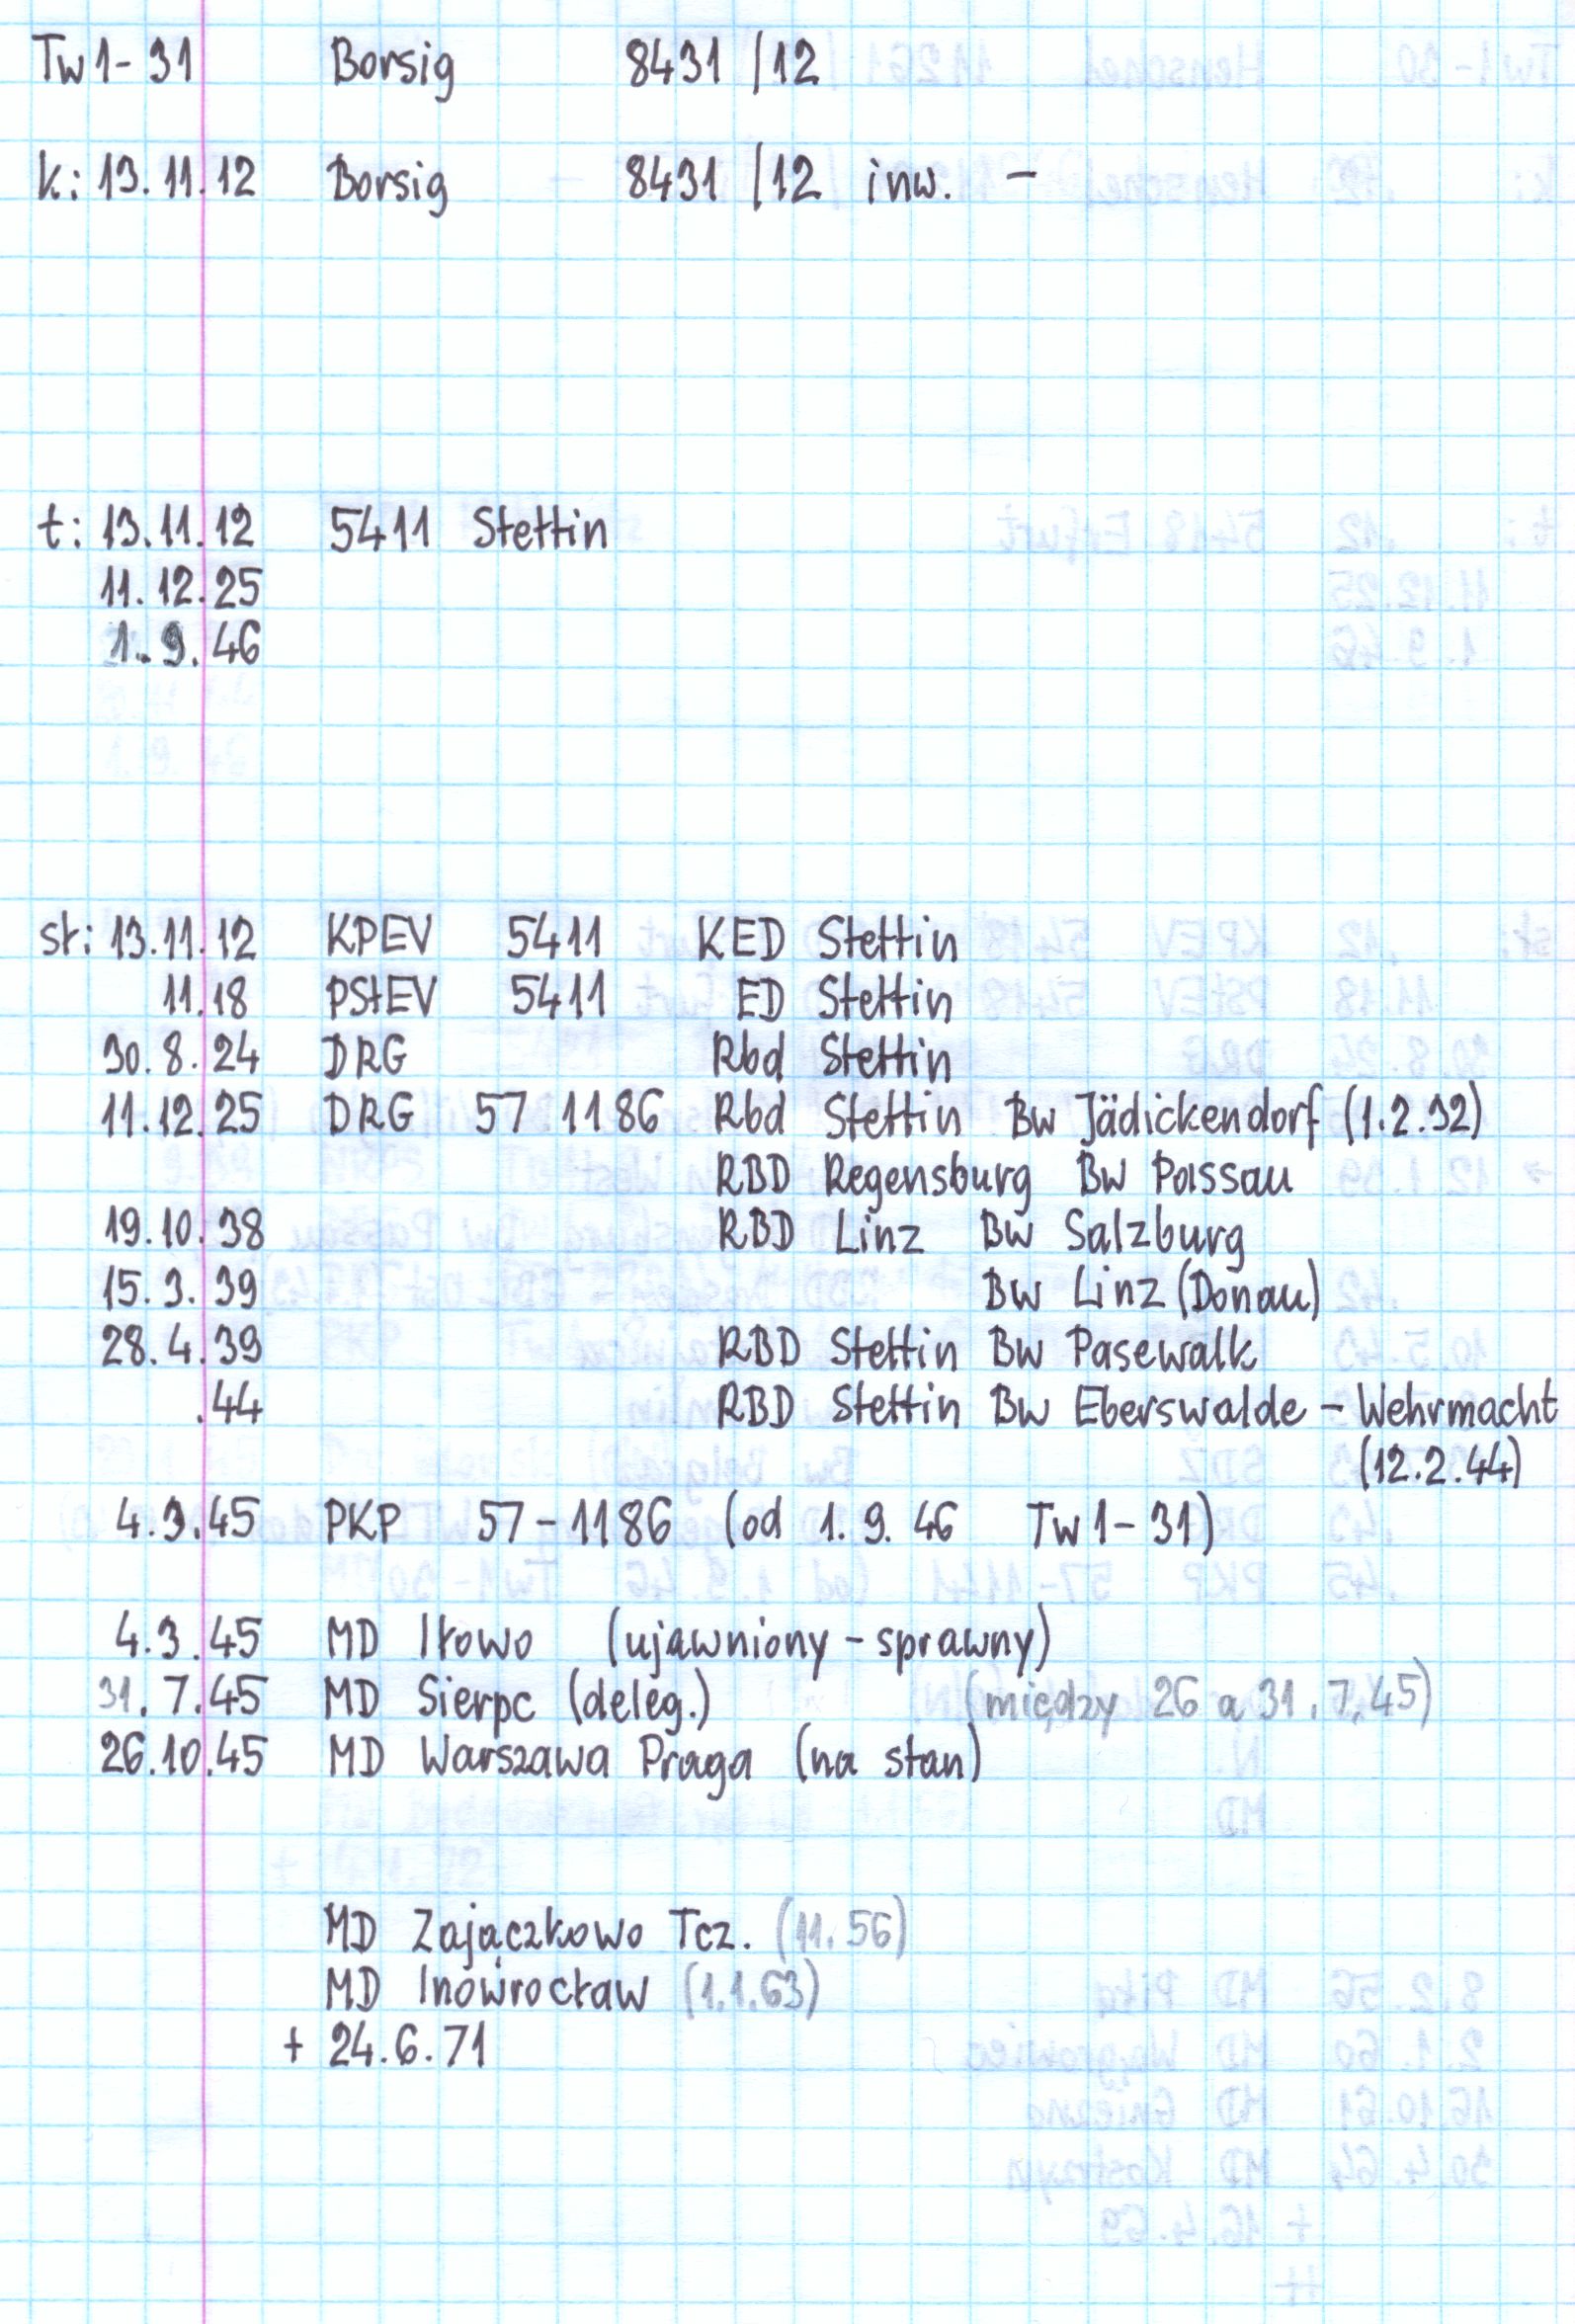 Tw1-31 Borsig 8431 /12
k: 13.11.12 Borsig 8431 /12 inw. -
t: 13.11.12 5411 Stettin
11.12.25
1.9.46
st: 13.11.12 KPEV 5411 KED Stettin
11.18 PStEV 5411 ED Stettin
30.8.24 DRG Rbd Stettin
11.12.25 DRG 57 1186 Rbd Stettin Bw Jädickendorf (1.2.32)
RBD Regensburg Bw Passau
19.10.38 RBD Linz Bw Salzburg
15.3.39 Bw Linz (Donau)
28.4.39 RBD Stettin Bw Pasewalk
.44 RBD Stettin Bw Eberswalde - Wehrmacht
(12.2.44)
4.3.45 PKP 57-1186 (od 1.9.46 Tw1-31)
4.3.45 MD Iłowo (ujawniony - sprawny)
31.7.45 MD Sierpc (deleg.) (między 26 a 31.7.45)
26.10.45 MD Warszawa Praga (na stan)
MD Zajączkowo Tcz. (11.56)
MD Inowrocław (1.1.63)
+ 24.6.71